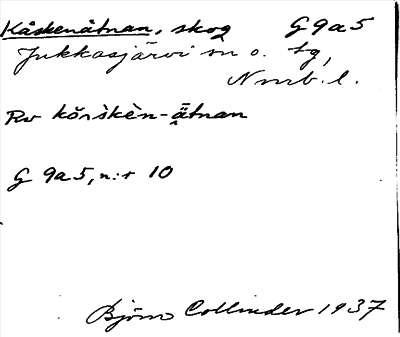 Kåskenåtnan, skog G 9a5
Jukkasjärvi sn o. tg,
Nrrb. l.
Rv kŏrskèn-ātnan
G 9a5, n:r 10
Björn Collinder 1937